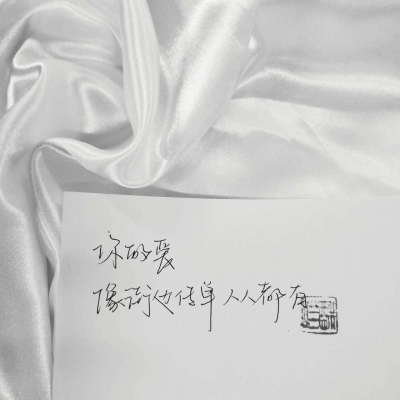 你的爱
像街边传单人人都有